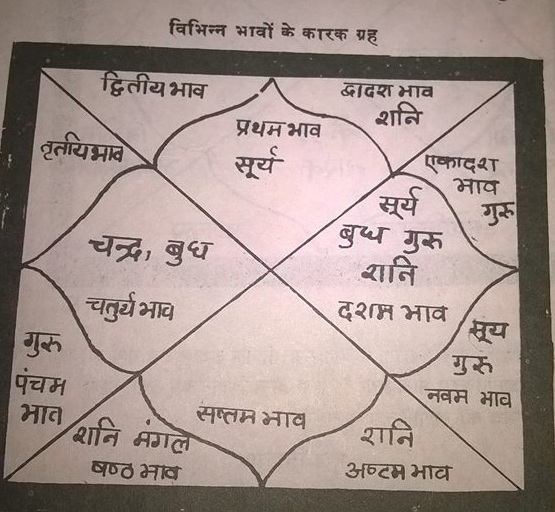 विभिन्न भावों के कारक ग्रह
द्वितीय भाव
द्वादश भाव
शनि
प्रथम भाव
सूर्य
तृतीय भाव
एकादश
भाव
गुरु
सूर्य
बुध गुरु
शनि
दशम भाव
चन्द्र, बुध
चतुर्थ भाव
गुरु
पंचम
भात
सूर्य
गुरु
नवम भाव
सप्तम भाव
शनि मंगल
षष्ठ भाव
शनि
अष्टम भाव